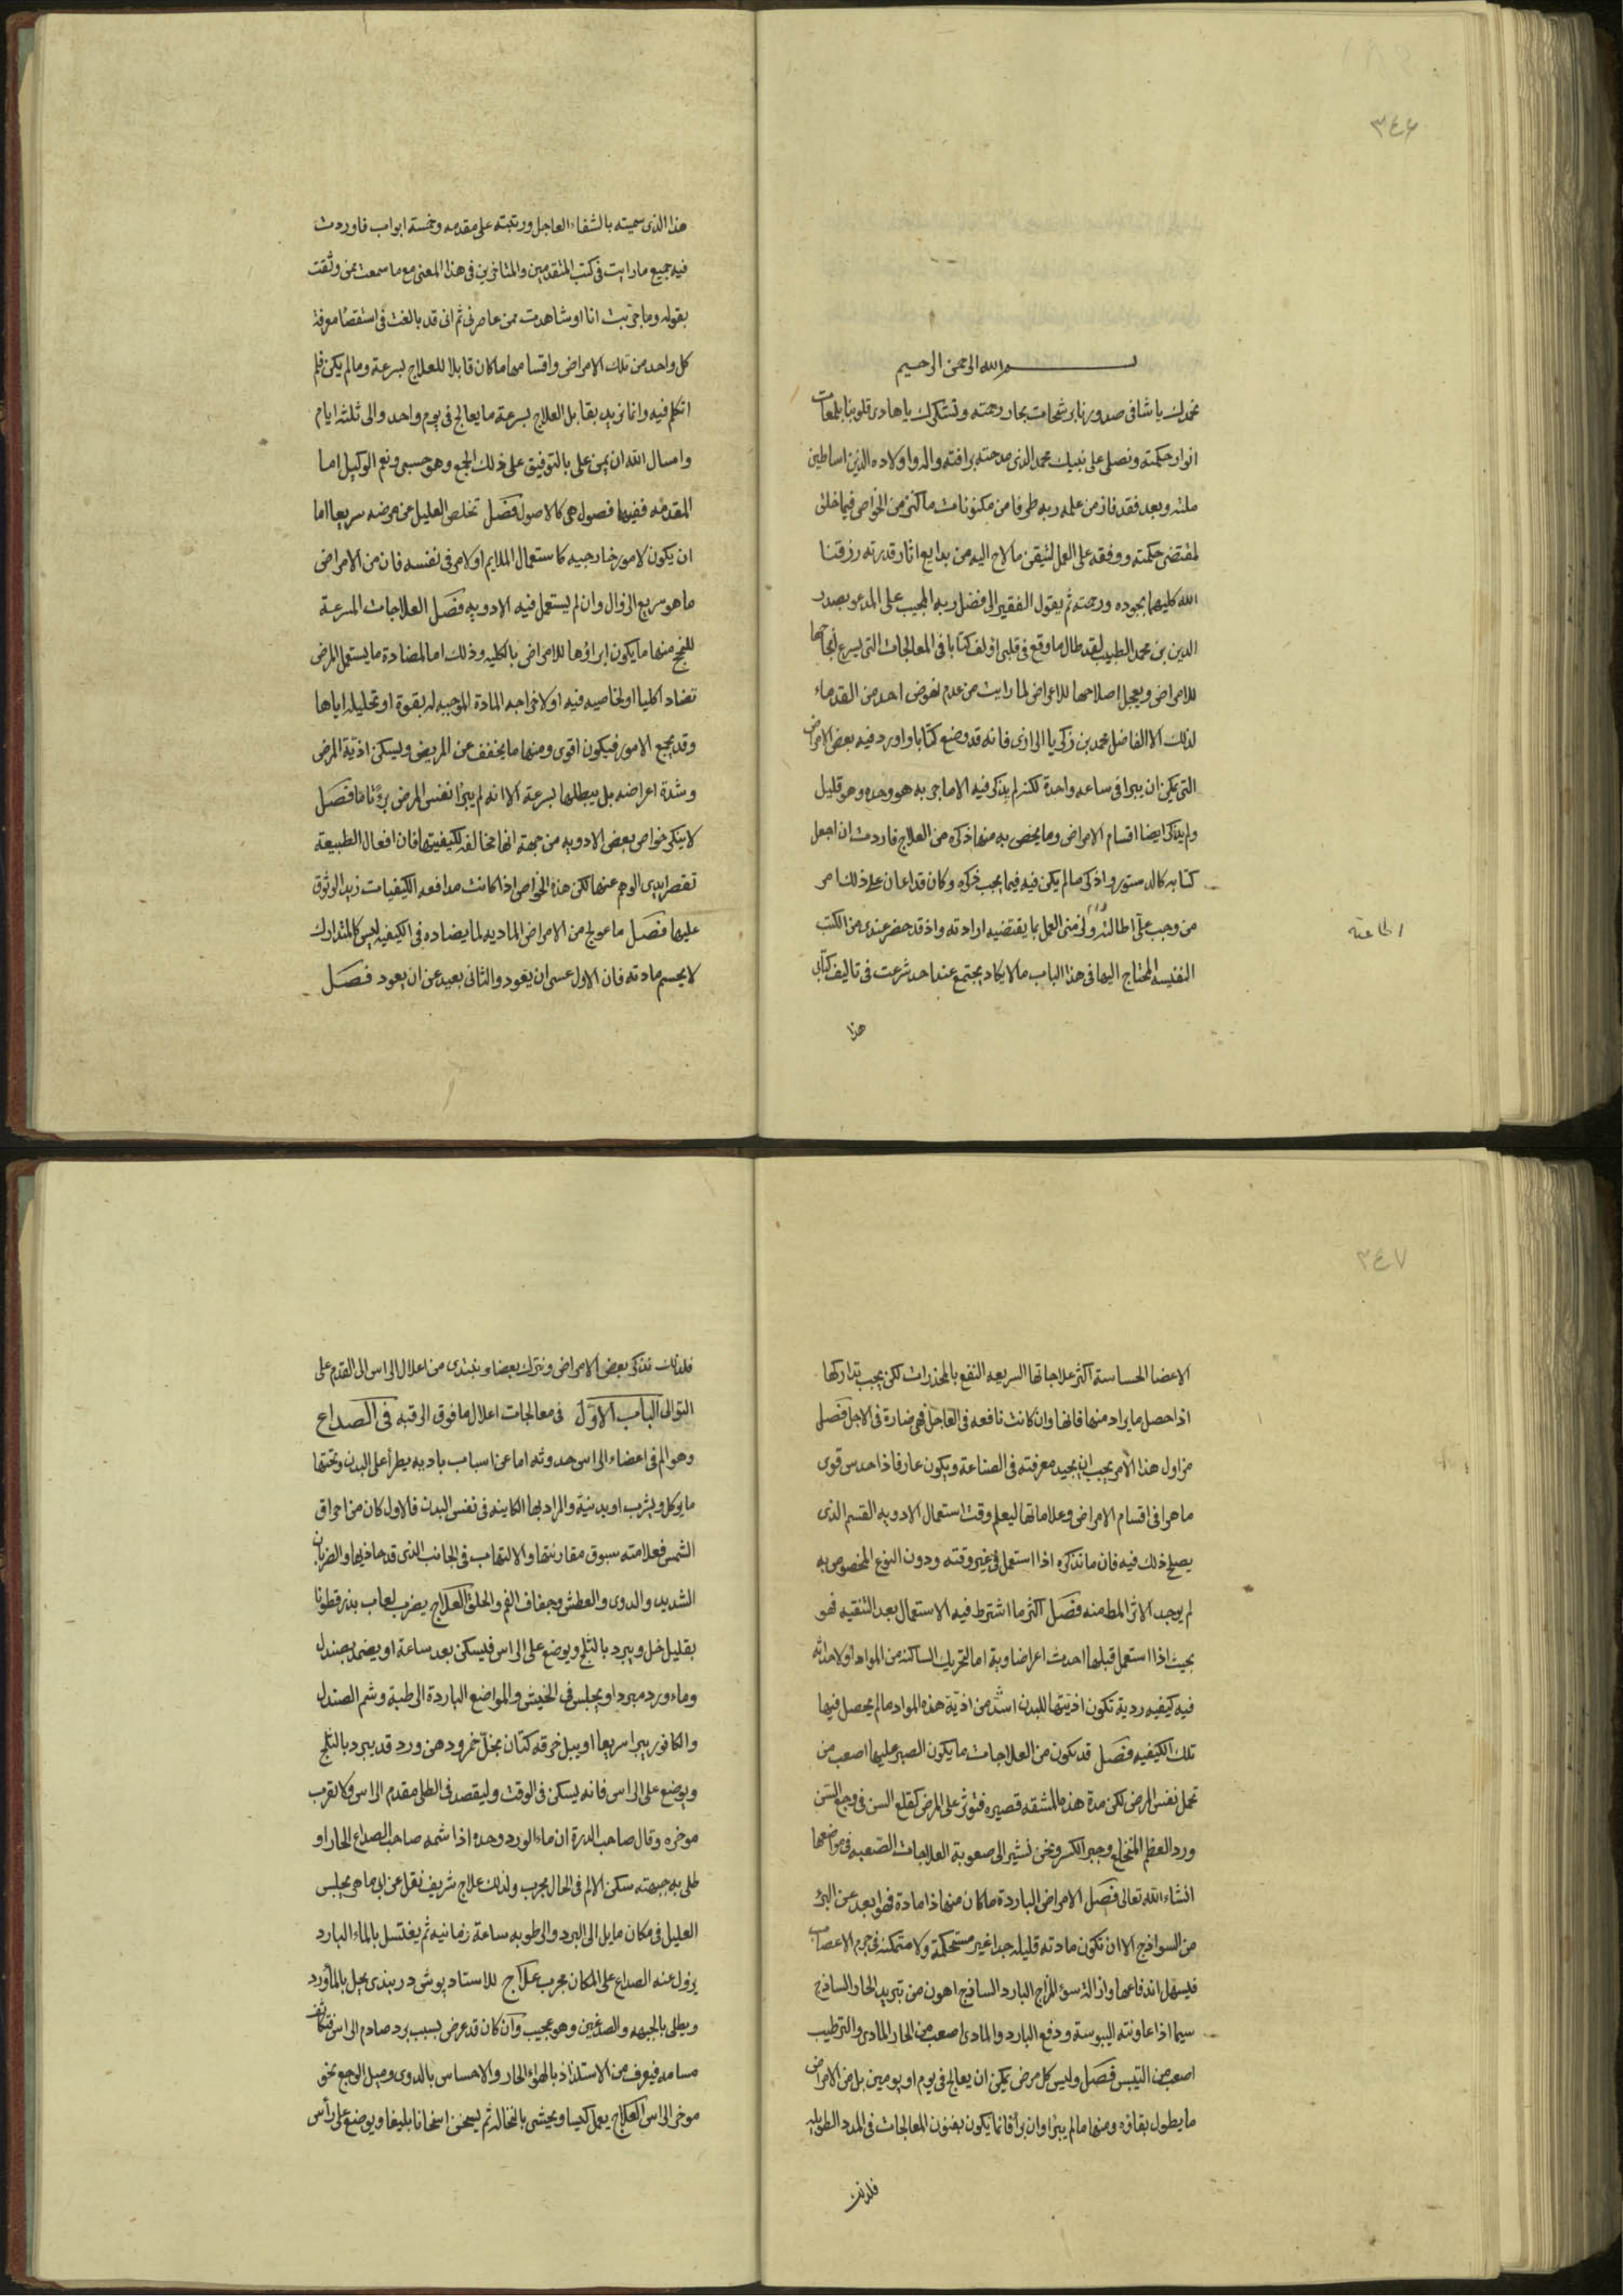 ٣٤٦
بسم الله الرحمن الرحيم
نحمدك يا شافى صدورنا برشحات بحار رحمته ونشكرك يا هادى قلوبنا بلمعات
انوار حكمته ونصلى على نبيك محمد الذى مدحته برافته واله واولاده الذين اساطين
ملته وبعد فقد فاز من علمه ربه طرفا من مكنونات ما كنز من الخواص فيما خلق
لمقتضى حكمته ووفقه على العمل لتيقن ما لاح اليه من بدايع اثار قدرته رزقنا
الله كليهما بجوده ورحمته ثم يقول الفقير الى فضل ربه المجيب على المدعو بصدر
الدين بن محمد الطبيب لقد طال ما وقع فى قلبى اؤلف كتابا فى المعالجات التى يسرع انجاحها
للامراض ويعجل اصلاحها للاعراض لما رايت من عدم نهوض احد من القدماء
لذلك الا الفاضل محمد بن زكريا الرازى فانه قد وضع كتابا واورد فيه بعض الامراض
التى يمكن ان يبرا فى ساعه واحدة لكنه لم يذكر فيه الا ما جربه هو وحده وهو قليل
ولم يذكر ايضا اقسام الامراض وما يخص به منها ذكره من العلاج فاردت ان اجعل
كتابه كالدستور واذكر ما لم يكن فيه فيما يجب ذكره وكان قد اعان على ذلك امر
من وجب على اطالته ولزمنى العمل بما يقتضيه ارادته واذ قد حضر عندى من الكتب
اطاعته
النفيسه المحتاج اليها فى هذا الباب ما لا يكاد يجتمع عند احد شرعت فى تاليف كتابى
هذا
هذا الذى سميته بالشفاء العاجل ورتبته على مقدمه وخمسة ابواب فاوردت
فيه جميع ما رايت فى كتب المتقدمين والمتاخرين فى هذا المعنى مع ما سمعت ممن وثقت
بقوله وما جربت انا او شاهدت ممن عاصرنى ثم انى قد بالغت فى استقصا معرفة
كل واحد من تلك الامراض واقسامها ما كان قابلا للعلاج بسرعة وما لم يكن فلم
اتكلم فيه وانما نريد بقابل العلاج بسرعة ما يعالج فى يوم واحد والى ثلثه ايام
واسال الله ان يمن على بالتوفيق على ذلك الجمع وهو حسبى ونعم الوكيل اما
المقدمه ففيها فصول هى كالاصول فصل تخلص العليل من مرضه سريعا اما
ان يكون لامور خارجيه كاستعمال الملايم او لامر فى نفسه فان من الامراض
ما هو سريع الزوال وان لم يستعمل فيه الادويه فصل العلاجات المسرعة
للنجح منها ما يكون ابراؤها للامراض بالكليه وذلك اما لمضادة ما يستعمل المرض
تضادا كليا او لخاصيه فيه او لاخراجه المادة الموجبه له بقوة او تحليله اياها
وقد يجمع الامور فيكون اقوى ومنها ما يخفف عن المريض ويسكن اذية المرض
وشدة اعراضه بل يبطلها بسرعة الا انه لم يبرا نفس المرض برؤا تاما فصل
لا ينكر خواص بعض الادويه من جهة انها مخالفه لكيفيتها فان افعال الطبيعة
تقصر ايدى الوهم عنها لكن هذه الخواص اذا كانت مدافعه الكيفيات زيد الوثوق
عليها فصل ما عولج من الامراض الماديه لما يضاده فى الكيفيه ليس كالمتدارك
لا يحسم مادته فان الاول عسى ان يعود والثانى بعيد عن ان يعود فصل
٣٤٧
الاعضا الحساسة اكثر علاجاتها السريعه النفع بالمخدرات لكن يجب تداركها
اذا حصل ما يراد منها فانها وان كانت نافعه فى العاجل فهى ضارة فى الاجل فصل
مزاول هذا الامر يجب ان يجيد معرفته فى الصناعة ويكون عارفا ذا حدس قوى
ماهرا فى اقسام الامراض وعلاماتها ليعلم وقت استعمال الادويه القسم الذى
يصلح ذلك فيه فان ما نذكره اذا استعمل فى غير وقته ودون النوع المخصوص به
لم يوجد الاثر المط منه فصل اكثر ما اشترط فيه الاستعمال بعد التنقيه فهو
بحيث اذا استعمل قبلها احدث اعراضا ردية اما لتحريك الساكنه من المواد او لاحداثه
فيه كيفيه ردية تكون اذيتها للبدن اشد من اذية هذه المواد ما لم يحصل فيها
تلك الكيفيه فصل قد يكون من العلاجات ما يكون الصبر عليها اصعب من
تحمل نفس المرض لكن مدة هذه المشقه قصيره فتوثر على المرض كقلع السن فى وجع السن
ورد العظم المنخلع وجبر الكسر ونحن نشير الى صعوبة العلاجات الصعبه فى مواضعها
انشاء الله تعالى فصل الامراض الباردة ما كان منها ذا مادة فهو ابعد عن البرؤ
من السواذج الا ان تكون مادته قليله جدا غير مستحكمة ولا متمكنه فى جرم الاعصاب
فليسهل اندفاعها وازالة سوء المزاج البارد الساذج اهون من تبريد الحار الساذج
سيما اذا عاونته اليبوسة ودفع البارد والمادى اصعب من الحار المادى والترطيب
اصعب من التيبس فصل وليس كل مرض يمكن ان يعالج فى يوم او يومين بل من الامراض
ما يطول بقاؤه ومنها ما لم يبرا وان برأ فانما يكون بفنون المعالجات فى المدد الطويله
فلذلك
فلذلك نذكر بعض الامراض ونترك بعضا ونبتدى من اعلال الراس الى القدم على
التوالى الباب الاول فى معالجات اعلال ما فوق الرقبه فى الصداع
وهو الم فى اعضاء الراس حدوثه اما عن اسباب باديه يطرأ على البدن وتحتها
ما يوكل ويشرب او بدنية والمراد بها الكاينه فى نفس البدن فالاول كان من احراق
الشمس فعلامته سبوق مقارنتها والالتهاب فى الجانب الذى قد حاذيها والضربان
الشديد والدوى والعطش وجفاف الفم والحلق العلاج يضرب لعاب بذرقطونا
بقليل خل ويبرد بالثلج ويوضع على الراس فيسكن بعد ساعة او يضمد بصندل
وماء ورد مبرد او يجلس فى الخيش والمواضع الباردة الرطبة وشم الصندل
والكافور يبرا سريعا او يبل خرقه كتان بخل خمر ودهن ورد قد يبرد بالثلج
ويوضع على الراس فانه يسكن فى الوقت وليقصد فى الطلى مقدم الراس ولا لقرب
موخره وقال صاحب الدرة ان ماء الورد وحده اذا شمه صاحب الصداع الحار او
طلى به جبهته سكن الالم فى الحال مجرب ولذلك علاج شريف نقل عن ابى ماهر يجلس
العليل فى مكان مايل الى البرد والرطوبه ساعة زمانيه ثم يغتسل بالماء البارد
يزول عنه الصداع على المكان مجرب علاج للاستاد پوشى دربندى يحل بالماورد
ويطلى بالجبهه والصدغين وهو عجيب وان كان قد عرض بسبب برد صادم الراس فتكاثف
مسامه فيعرف من الاستلذاذ بالهواء الحار والاحساس بالدوى وميل الوجع نحو
موخر الراس العلاج يعمل كيسا ويحشى بالنخاله ثم يسخن اسخانا بليغا ويوضع على رأس